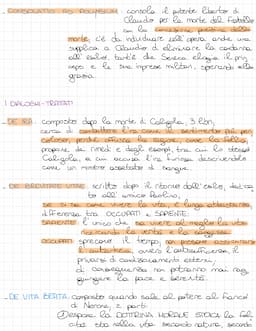 - CONSOLATIO AD POLYBIUM: consola il potente liberto di
Claudio per la morte del fratello
con la concezione positiva della
morte, c'è da individuare nell'opera anche una
supplica a Claudio di eliminare la condanna
all'esilio, tant'è che Seneca elogia il prin
cipe e le sue imprese militari, sperando nella
grazia.
I DIALOGHI-TRATTATI
- DE IRA: composto dopo la morte di Caligola, 3 libri,
cerca di combattere l'ira come il sentimento più peri
coloso, perché offusca la ragione, come la follia,
propone dei rimedi e degli esempi, tra cui lo stesso
Caligola, a cui accusa l'ira furiosa descrivendolo
come un mostro assetato di sangue.
- DE BREVITATE VITAE: scritto dopo il ritorno dall'esilio, dedica
to all'amico Paolino,
se si sa come vivere la vita, è lunga abbastanza
differenza tra OCCUPATI e SAPIENTE:
SAPIENTE l'unico che sa vivere al meglio la vita
ricercando la verità e la saggezza
OCCUPATI sprecano il tempo, non possono assicurarsi
l'autàrkeia, ovvero l'autosufficienza, il
privarsi di condizionamenti esterni,
di conseguenza non potranno mai rag
giungere la pace e serenità.
- DE VITA BEATA: composto quando sale al potere al fianco
di Nerone, 2 parti:
① espone la DOTTRINA MORALE STOICA la feli
cità sta nella vita secondo natura, secondo